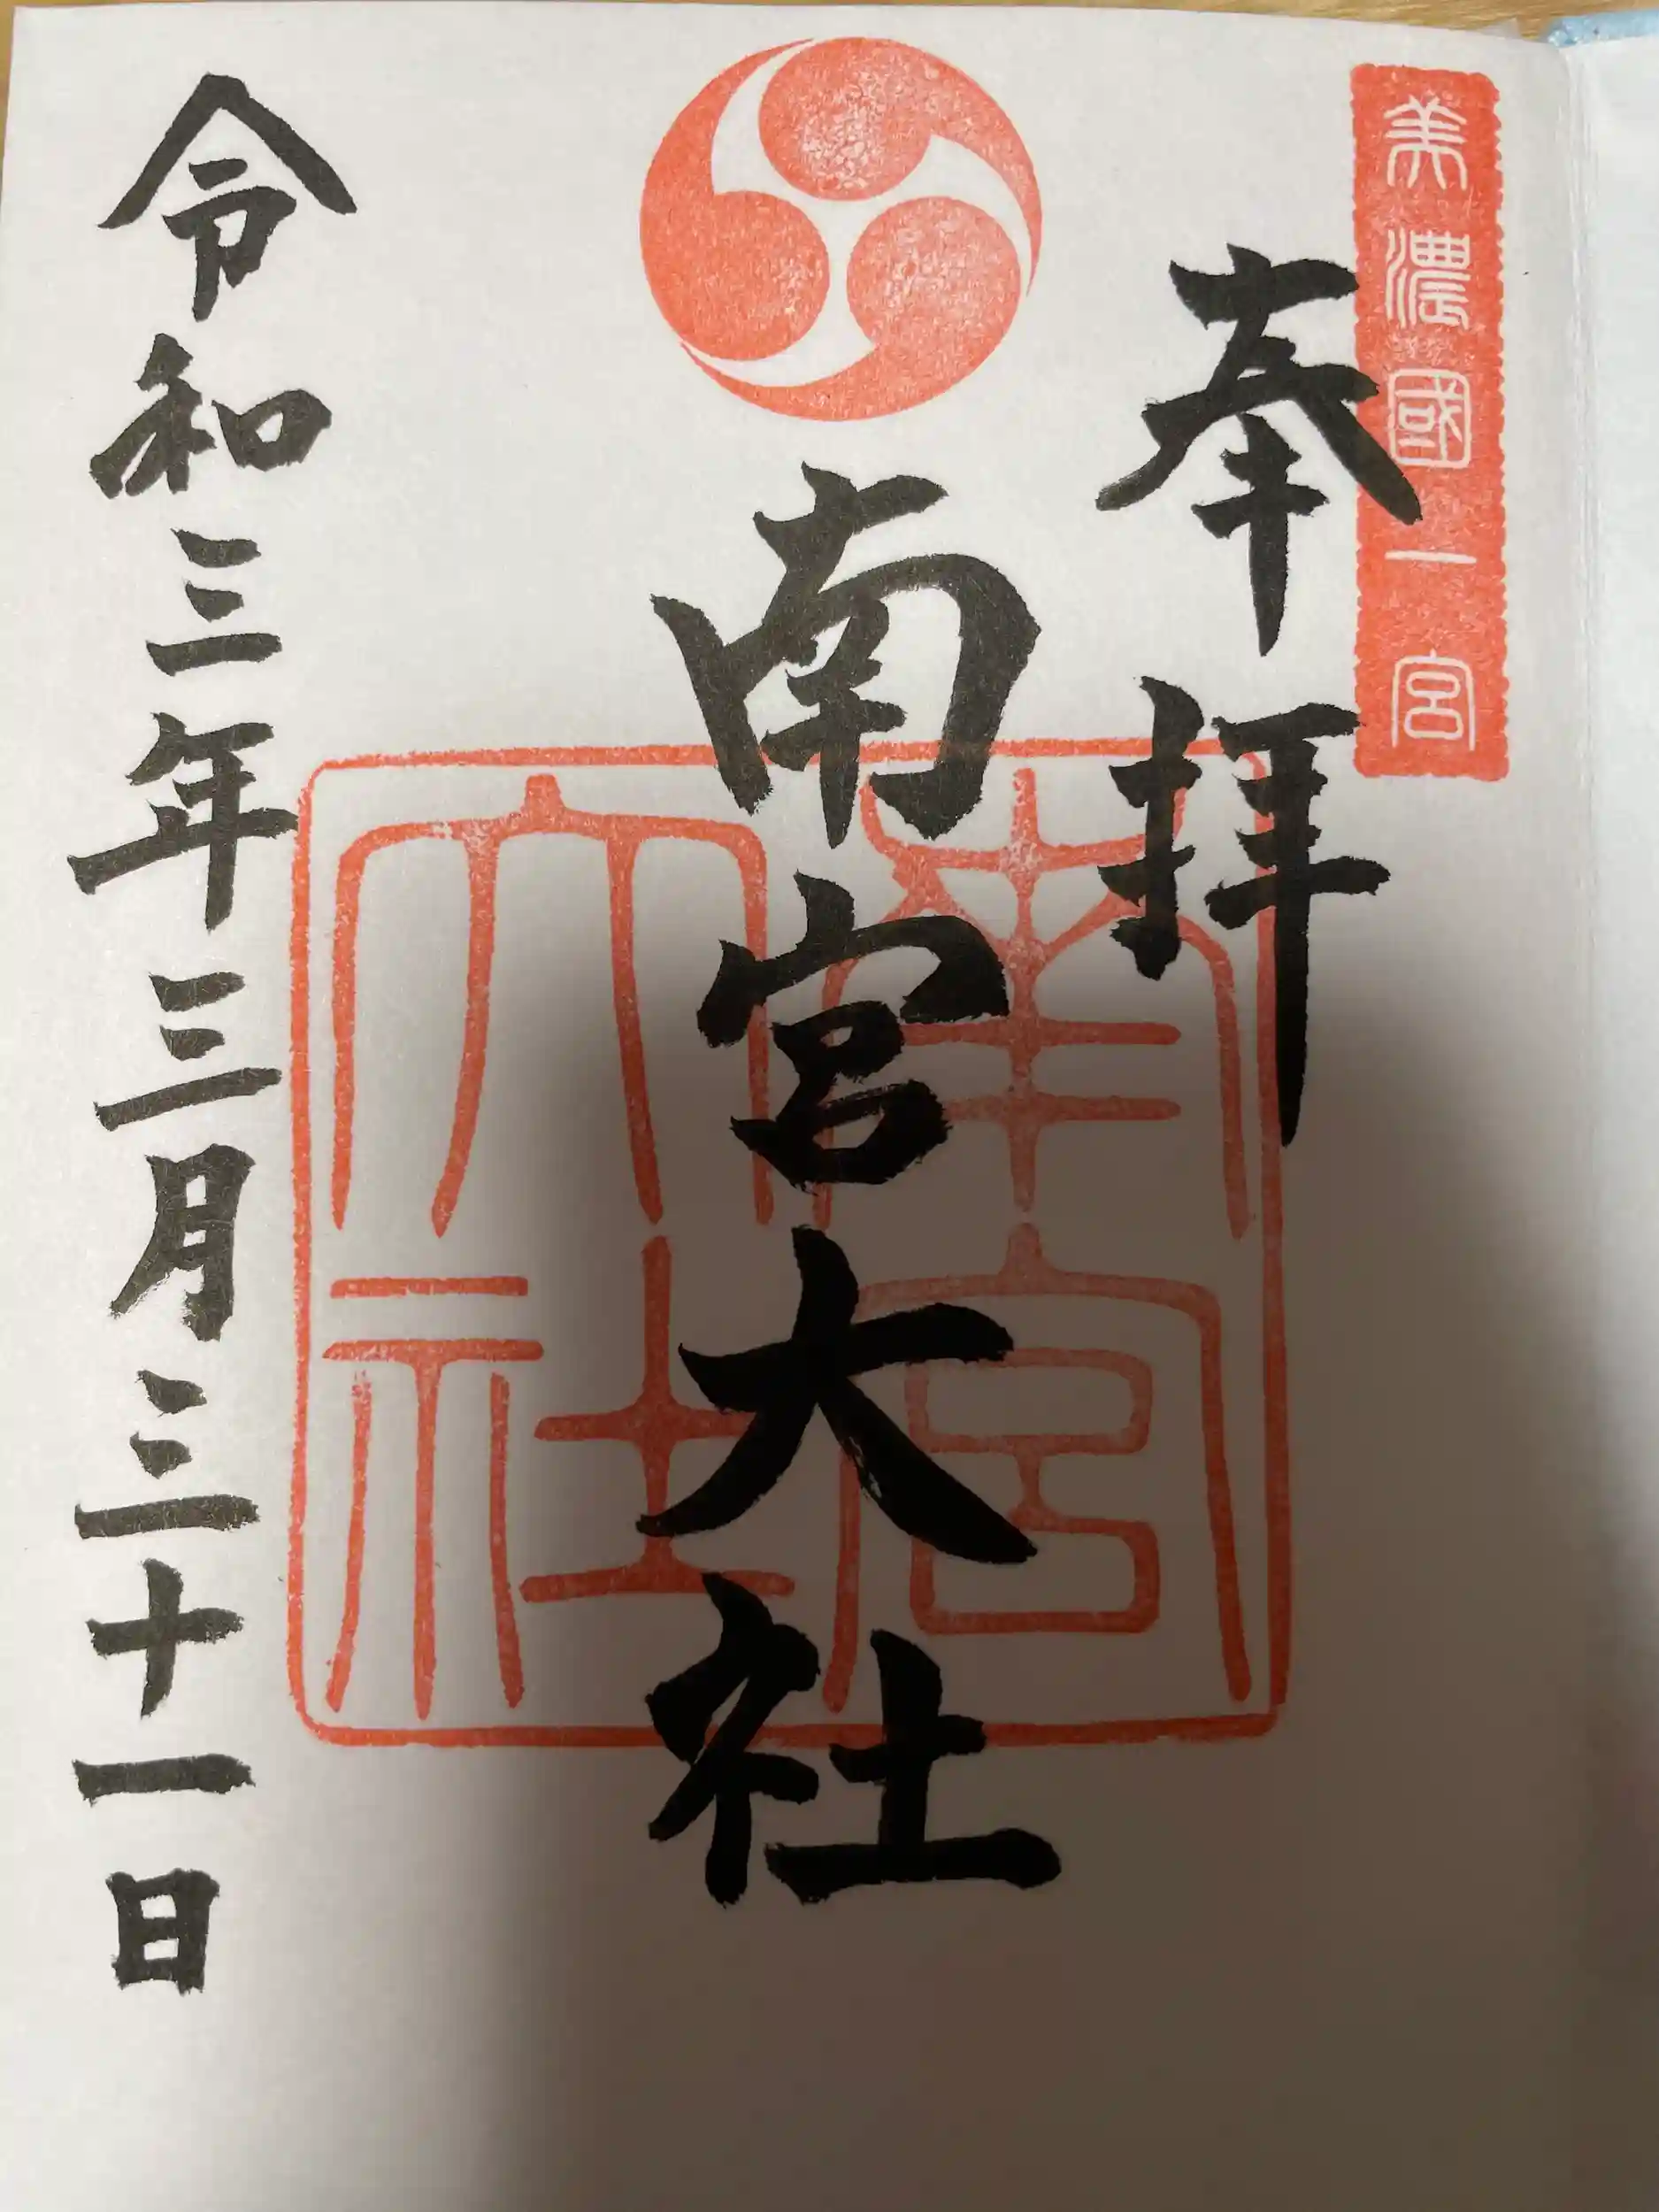 美濃國一宮
奉拝
南宮大社
南宮大社
令和三年三月三十一日